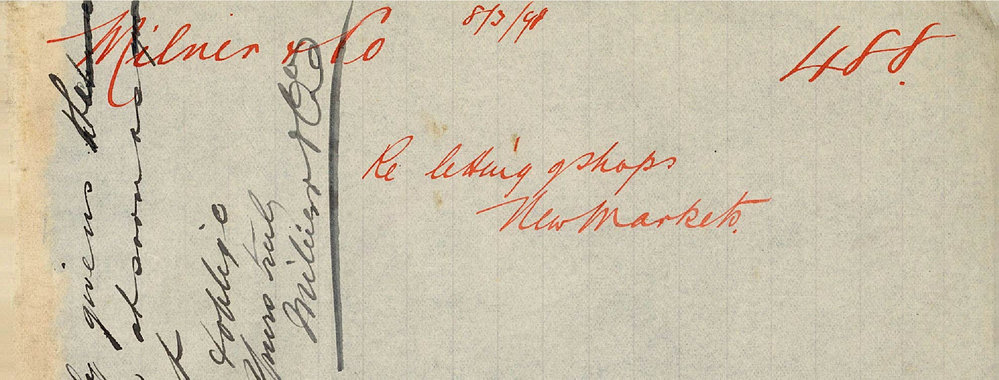 Milner & Co
8/3/98
488.
Re letting of shops
New Markets.
given them
at
& oblige
Yours truly
Milner & Co